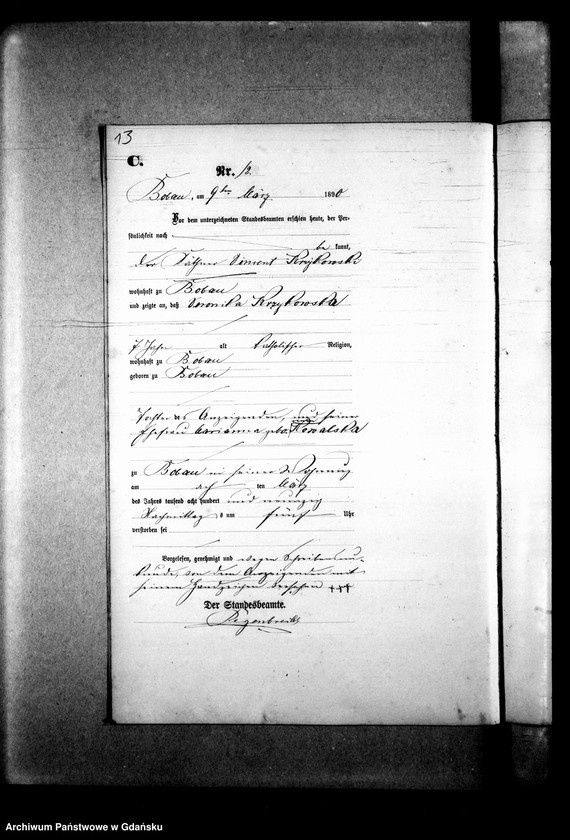 13
C.
Nr. 13.
Bobau, am 9ten März 1890
Vor dem unterzeichneten Standesbeamten erschien heute, der Per-
sönlichkeit nach
be kannt,
der Käthner Vincent Krzykowski
wohnhaft zu Bobau
und zeigte an, daß Veronika Krzykowska
7 Jahre alt katholischer Religion,
wohnhaft zu Bobau
geboren zu Bobau
Tochter des Anzeigenden, und seiner
Ehefrau Marianna geb. Kowalska
zu Bobau in seiner Wohnung
am acht den März
des Jahres tausend acht hundert und neunzig
Nachmittags um fünf Uhr
verstorben sei
Vorgelesen, genehmigt und wegen Schreibensun-
kunde, von dem Anzeigenden mit
seinem Handzeichen versehen +++
Der Standesbeamte.
Archiwum Państwowe w Gdańsku